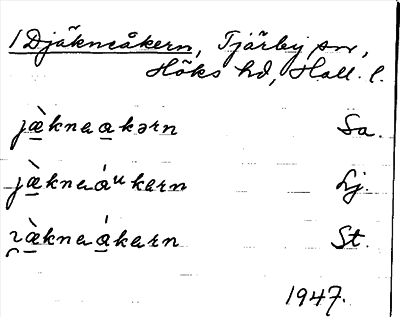 1 Djäkneåkern, Tjärby sn,
Höks hd, Hall. l.
jæ̀knaakərn Sa.
jæ̀knaáukərn Lj.
æ̀knaákərn St.
1947.